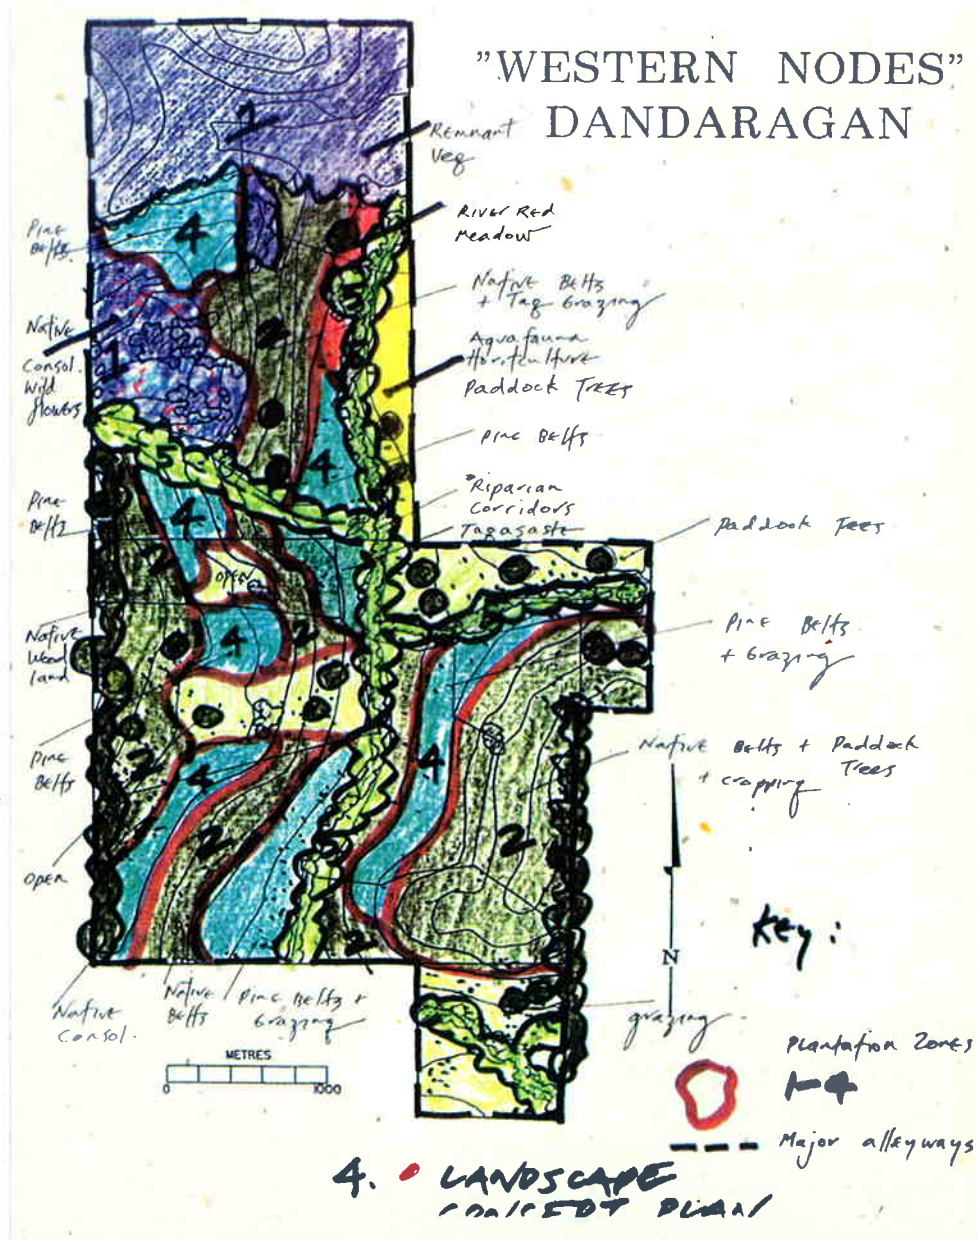 "WESTERN NODES"
DANDARAGAN
Remnant
Veg
River Red
Meadow
Native Belts
+ Tag Grazing
Aquafauna
Horticulture
Paddock Trees
Pine Belts
Riparian
Corridors
Tagasaste
Paddock Tees
Pine Belts
+ Grazing
Native Belts + Paddock
Trees
+ cropping
Pine
Belts
Native
Consol.
Wild
flowers
Pine
Belts
Native
Wood
land
Pine
Belts
Open
Native
Consol.
Native
Belts
Pine Belts +
Grazing
grazing
1
4
2
5
1
4
5
4
OPEN
4
2
2
4
2
4
5
2
2
METRES
0
1000
N
Key:
Plantation Zones
1-4
Major alleyways
4. LANDSCAPE
CONCEPT PLAN